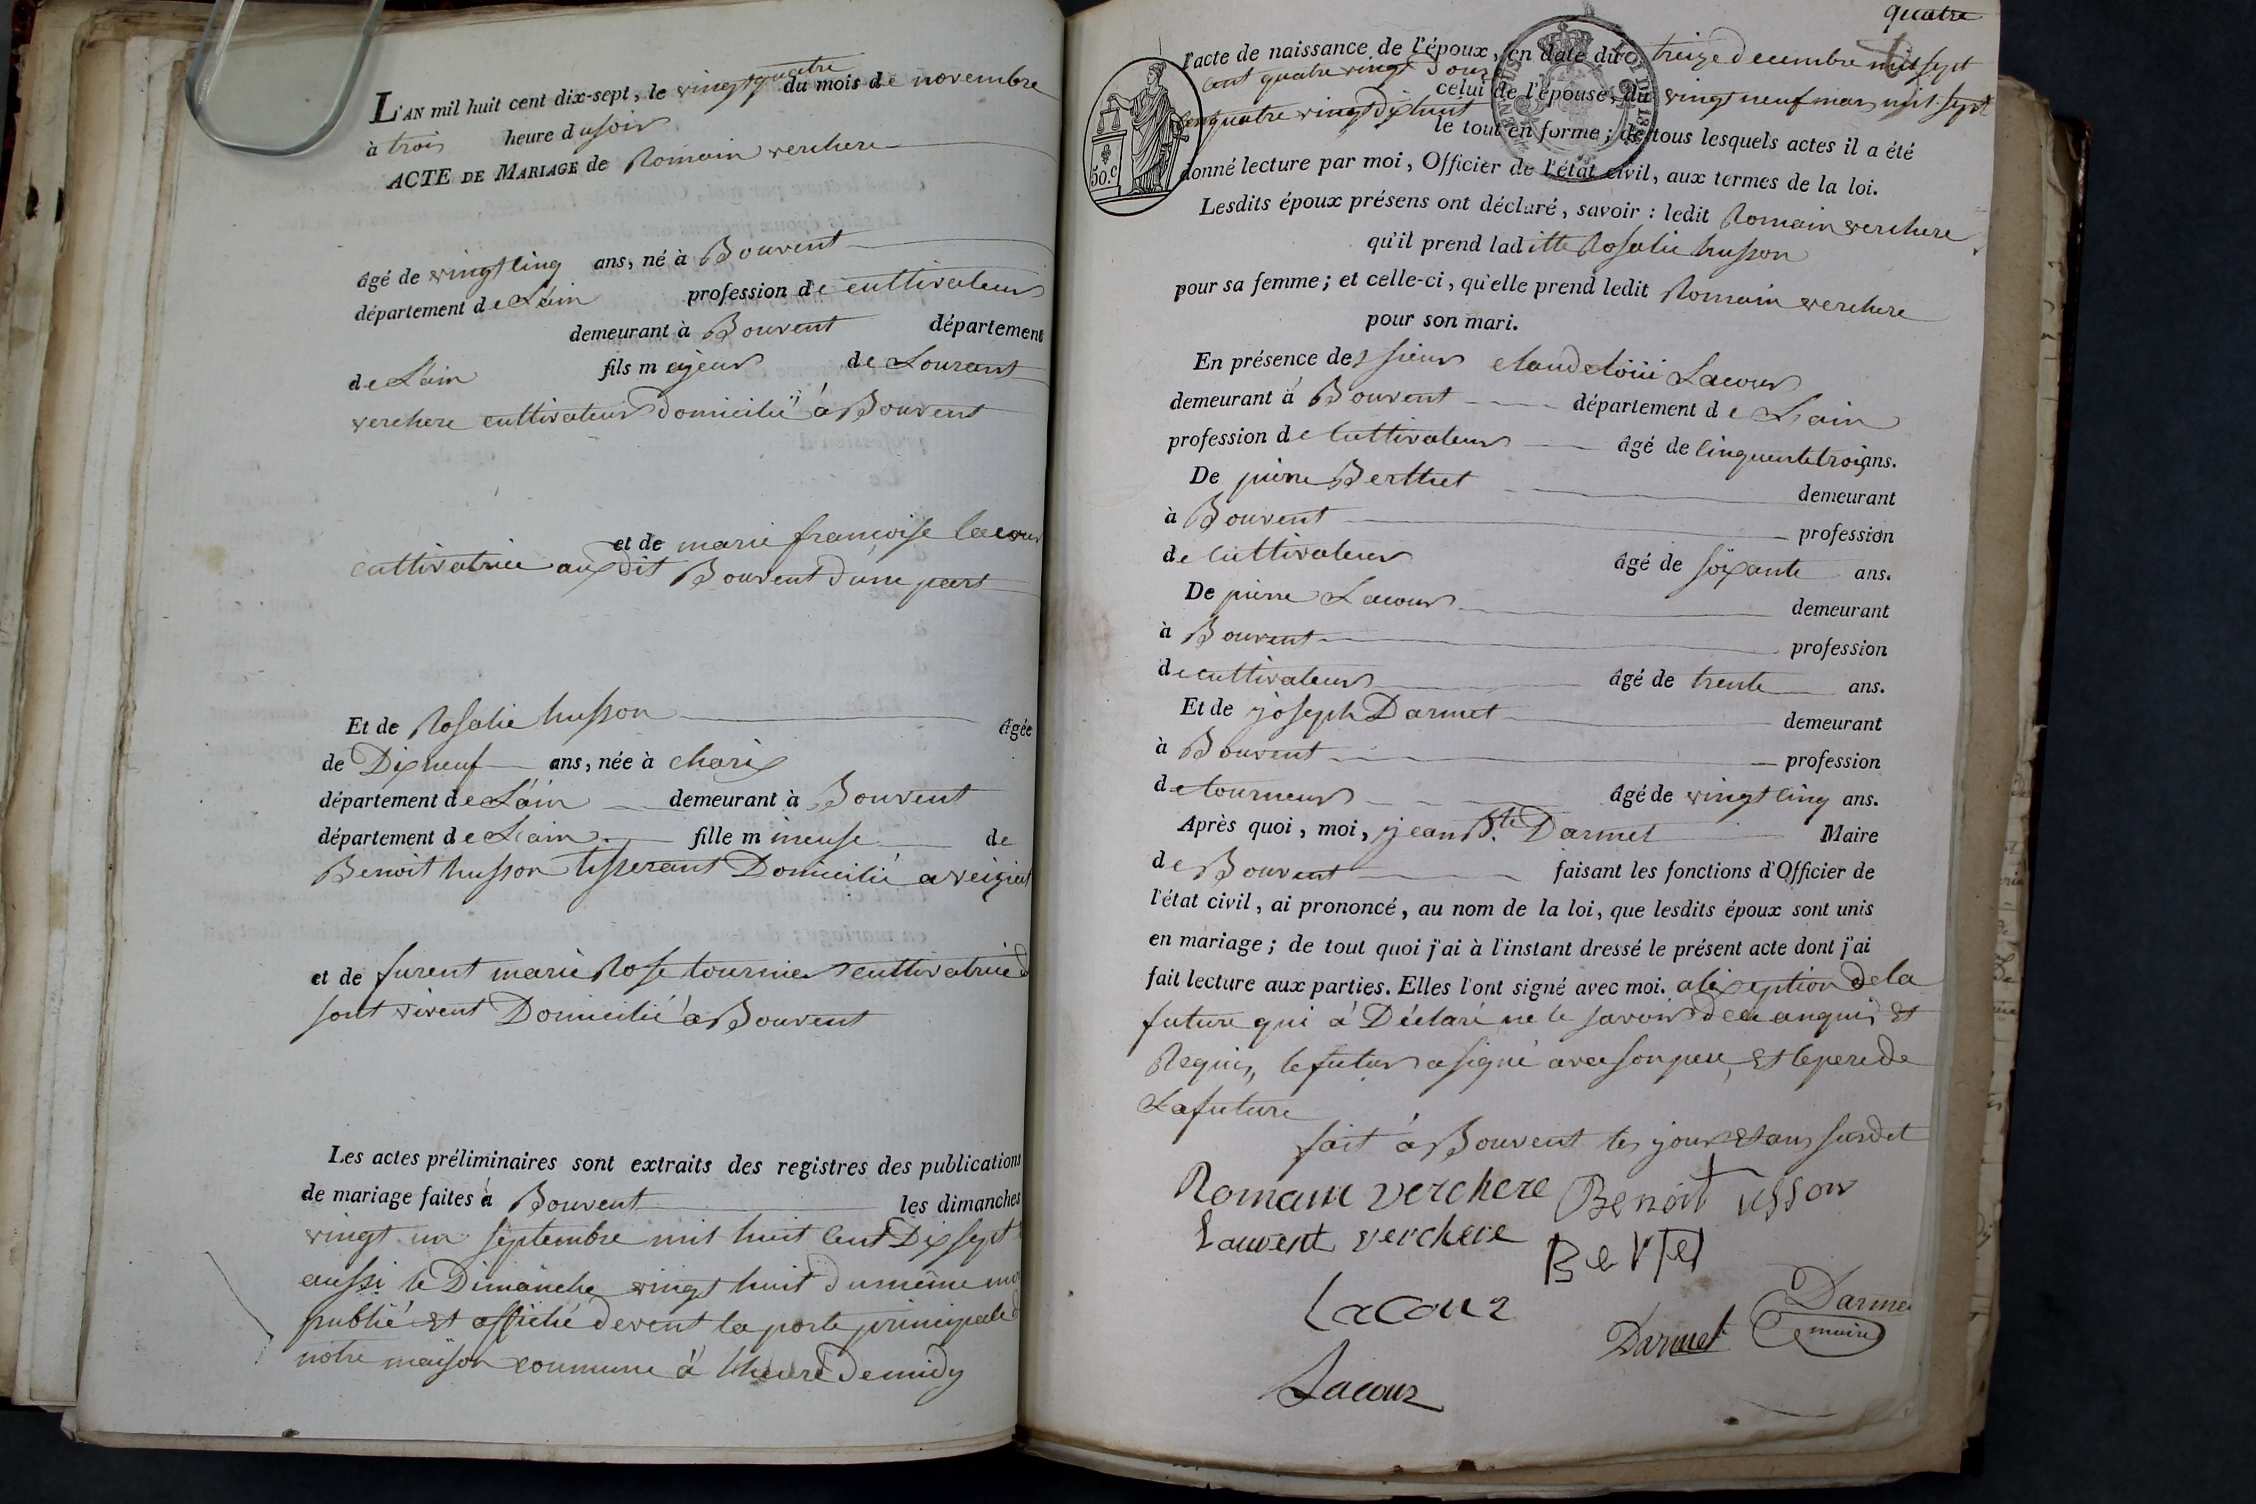 L'AN mil huit cent dix-sept, le vingt quatre du mois de novembre
à trois heure du soir
ACTE DE MARIAGE de Romain verchere
âgé de vingt cinq ans, né à Bouvent
département de L'ain profession de cultivateur
demeurant à Bouvent département
de L'ain fils majeur de Lourant
verchere cultivateur domicilié à Bouvent
et de marie francoise lacour
cultivatrice au dit Bouvent d'une part
Et de Rosalie husson âgée
de Dix neuf ans, née à charix
département de L'ain demeurant à Bouvent
département de L'ain fille mineuse de
Benoit husson tisserant Domicilié a veiziat
et de furent marie Rose tournier cultivatrice
sont vivent Domicilié à Bouvent
Les actes préliminaires sont extraits des registres des publications
de mariage faites à Bouvent les dimanches
vingt un septembre mil huit cent Dix sept
aussi le Dimanche vingt huit du même
publié et affiché devent la porte principale
notre maison commune à l'heure de midy
quatre
l'acte de naissance de l'époux, en date du treize decembre mil sept
cent quatre vingt Douze celui de l'épouse, du vingt neuf mars mil sept
cen quatre vingt dix huit le tout en forme ; de tous lesquels actes il a été
50.c
LOI DE 18
donné lecture par moi, Officier de l'état civil, aux termes de la loi.
Lesdits époux présens ont déclaré, savoir : ledit Romain verchere
qu'il prend laditte Rosalie husson
pour sa femme ; et celle-ci, qu'elle prend ledit Romain verchere
pour son mari.
En présence des sieur claude loüii Lacour
demeurant à Bouvent département de L'ain
profession de Cultivateur âgé de cinquente trois ans.
De pierre Berthet demeurant
à Bouvent profession
de cultivateur âgé de soixante ans.
De pierre Lacour demeurant
à Bouvent profession
de cultivateur âgé de trente ans.
Et de joseph Darmet demeurant
à Bouvent profession
de tourneur âgé de vingt cinq ans.
Après quoi, moi, jean Bte Darmet Maire
de Bouvent faisant les fonctions d'Officier de
l'état civil, ai prononcé, au nom de la loi, que lesdits époux sont unis
en mariage ; de tout quoi j'ai à l'instant dressé le présent acte dont j'ai
fait lecture aux parties. Elles l'ont signé avec moi. a l'exseption de la
future qui à Déclaré ne le savoir de ce anquis et
Requis, le futur a signé avec son pere, et le pere de
La future
fait à Bouvent les jour et ans susdit
Romain verchere Benoit usson
Laurent verchere Bertet
Lacour
Darmet Darmet maire
Lacour